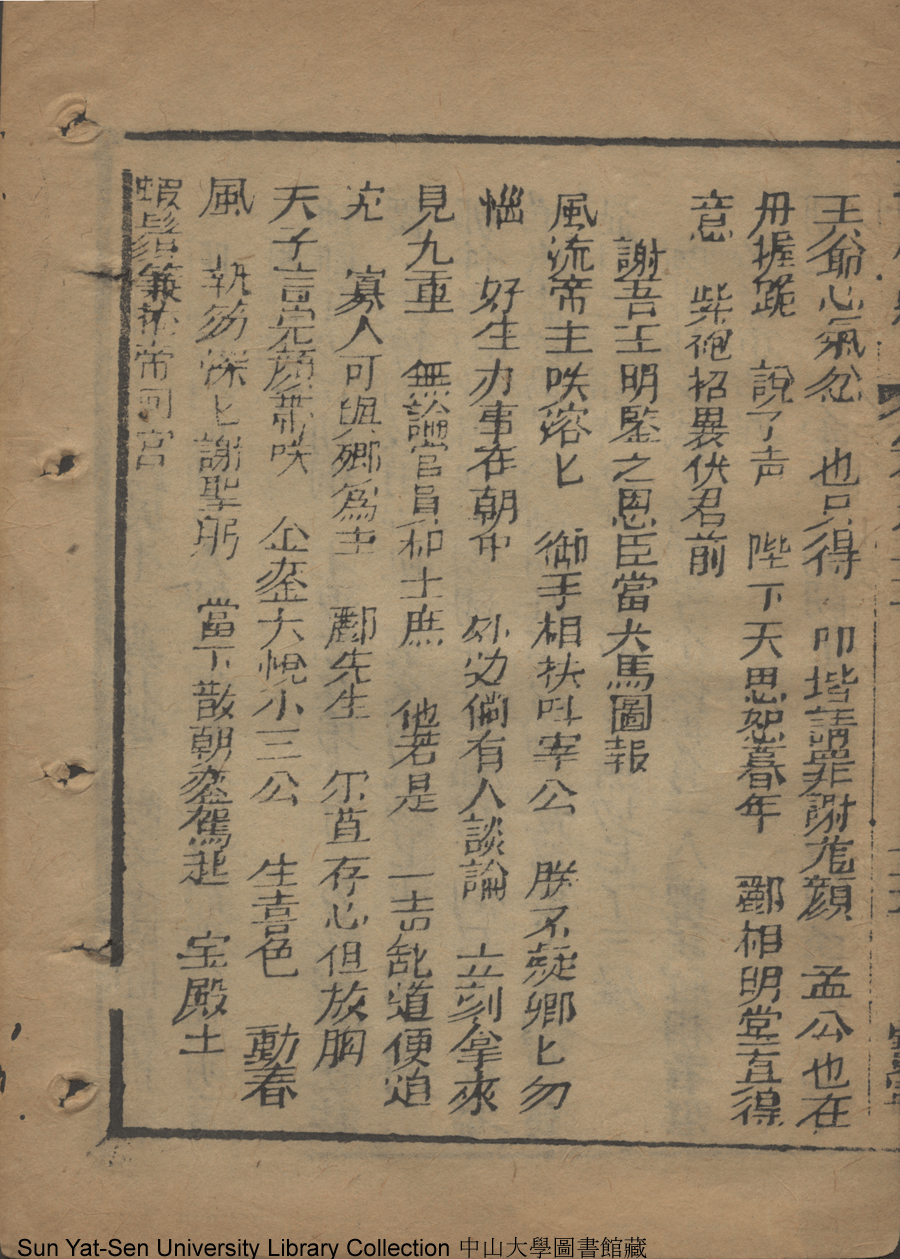 王爺心氣忿　也只得　叩堦請罪謝龍顏　孟公也在
丹握跪　說了声　陛下天恩恕暮年　酈相明堂直得
意　紫袍招異伏君前
謝吾王明鑒之恩臣當犬馬圖報
風流帝主咲溶匕　御手相扶叫宰公　朕不疑卿匕勿
惱　好生办事在朝中　外边倘有人談論　立刻拿來
見九重　無論官員和士庶　他若是　一言乱道便
究　寡人可與卿為主　酈先生　尔莫存心但放胸
天子言完顏帶咲　金鑾大悅小三公　生喜色　動春
風　執笏深匕謝聖躬　當下散朝鑾駕起　宝殿上
蝦鬚簾捲帝回宮
Sun Yat-Sen University Library Collection 中山大學圖書館藏